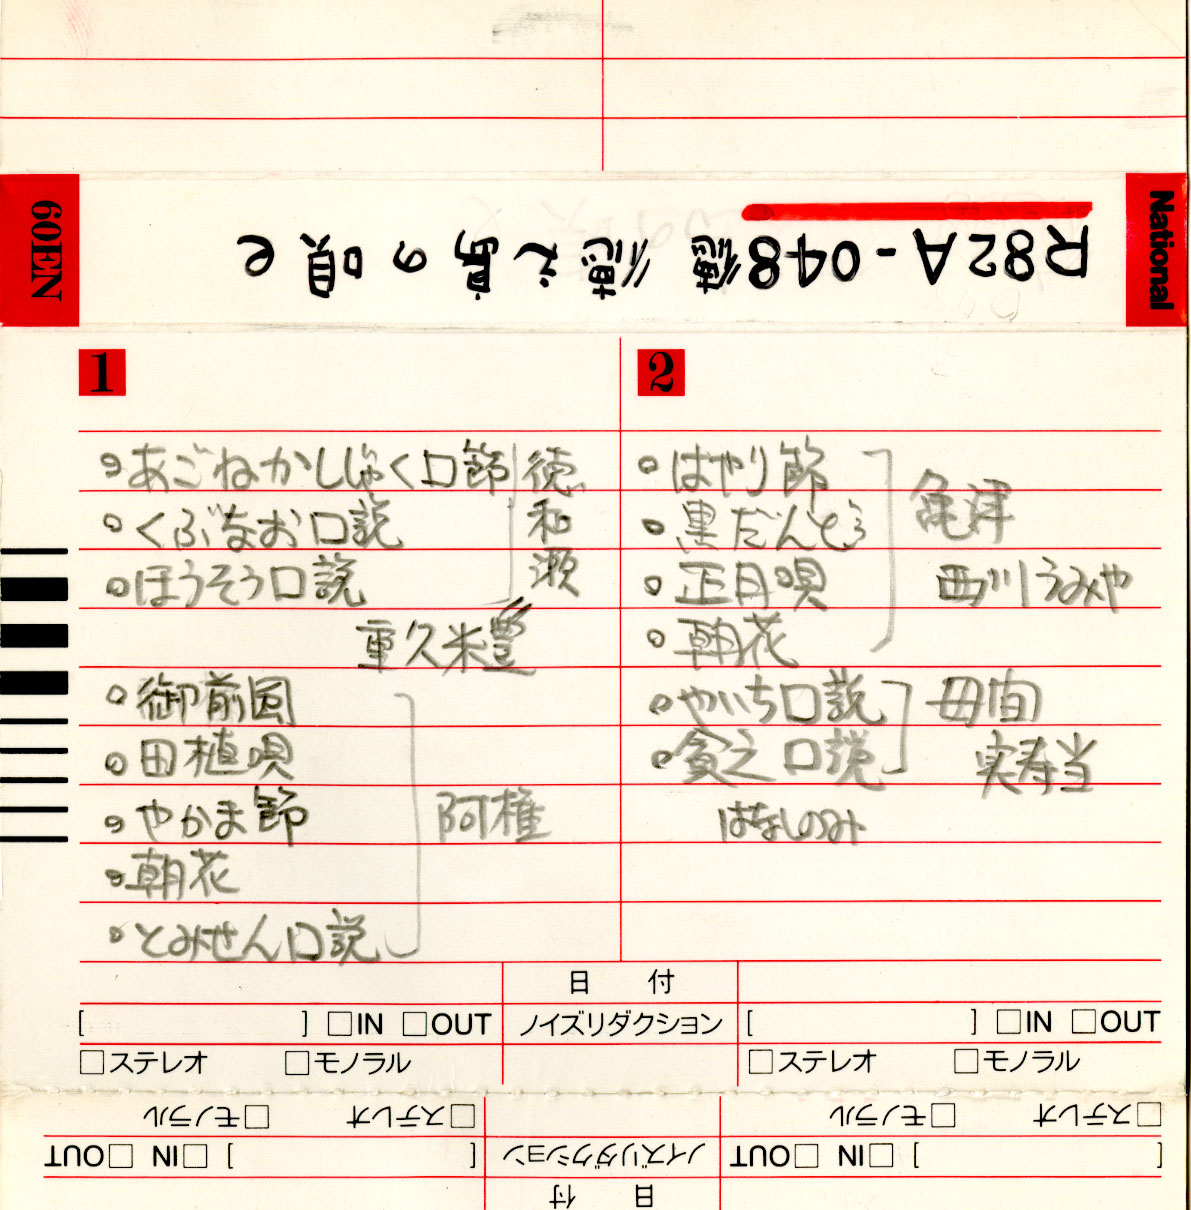 National
R82A-048 徳 徳之島の唄 e
NEH60
1
・あごねかしじゃく口節
・くぶなお口説
・ほうそう口説
徳和瀬
重久米豊
・御前風
・田植唄
・やかま節
・朝花
・とみせん口説
阿権
2
・はやり節
・黒だんとう
・正月唄
・朝花
亀津
西川うみや
・やいち口説
・貧乏口説
母間
実寿当
はなしのみ
日 付
[ ] □IN □OUT ノイズリダクション [ ] □IN □OUT
□ステレオ □モノラル □ステレオ □モノラル
日 付
[ ] □IN □OUT ノイズリダクション [ ] □IN □OUT
□ステレオ □モノラル □ステレオ □モノラル